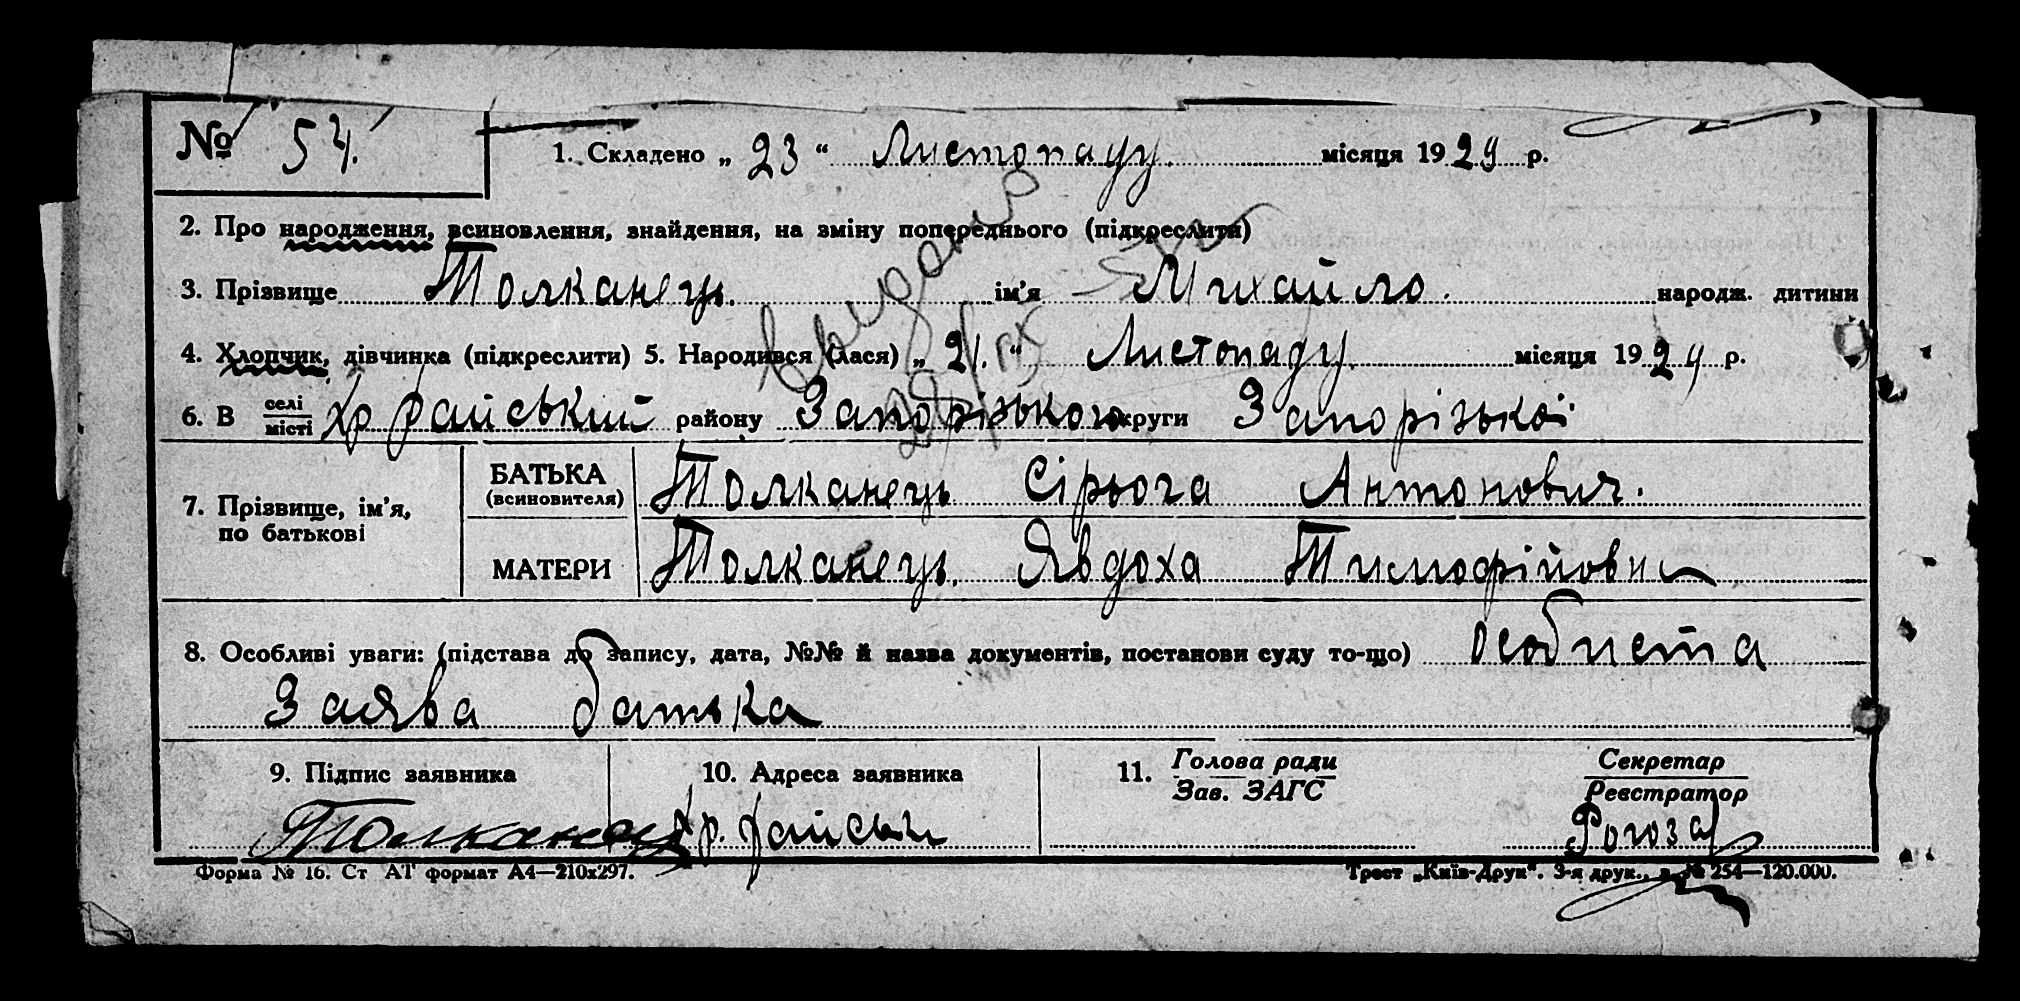 № 54. 1. Складено „ 23 “ Листопаду. місяця 1929 р.
2. Про народження, всиновлення, знайдення, на зміну попереднього (підкреслити)
3. Прізвище Толканець. ім'я Михайло. народж. дитини
4. Хлопчик, дівчинка (підкреслити) 5. Народився (лася) „ 21. “ Листопаду. місяця 1929 р.
6. В селі місті району Запорізького округи Запорізької
7. Прізвище, ім'я, по батькові
БАТЬКА (всиновителя) Толканець Сірьога Антонович.
МАТЕРИ Толканець. Явдоха
8. Особливі уваги: (підстава до запису, дата, №№ й назва документів, постанови суду то-що) особиста
Заява батька
9. Підпис заявника 10. Адреса заявника 11. Голова ради Секретар
Зав. ЗАГС Реєстратор
Толканець Рогоза
Форма № 16. Ст АТ формат А4—210х297. Трест „Київ-Друк“. 3-я друк., з. № 254—120.000.